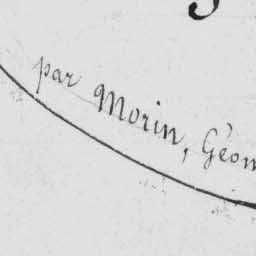 par Morin, Géom